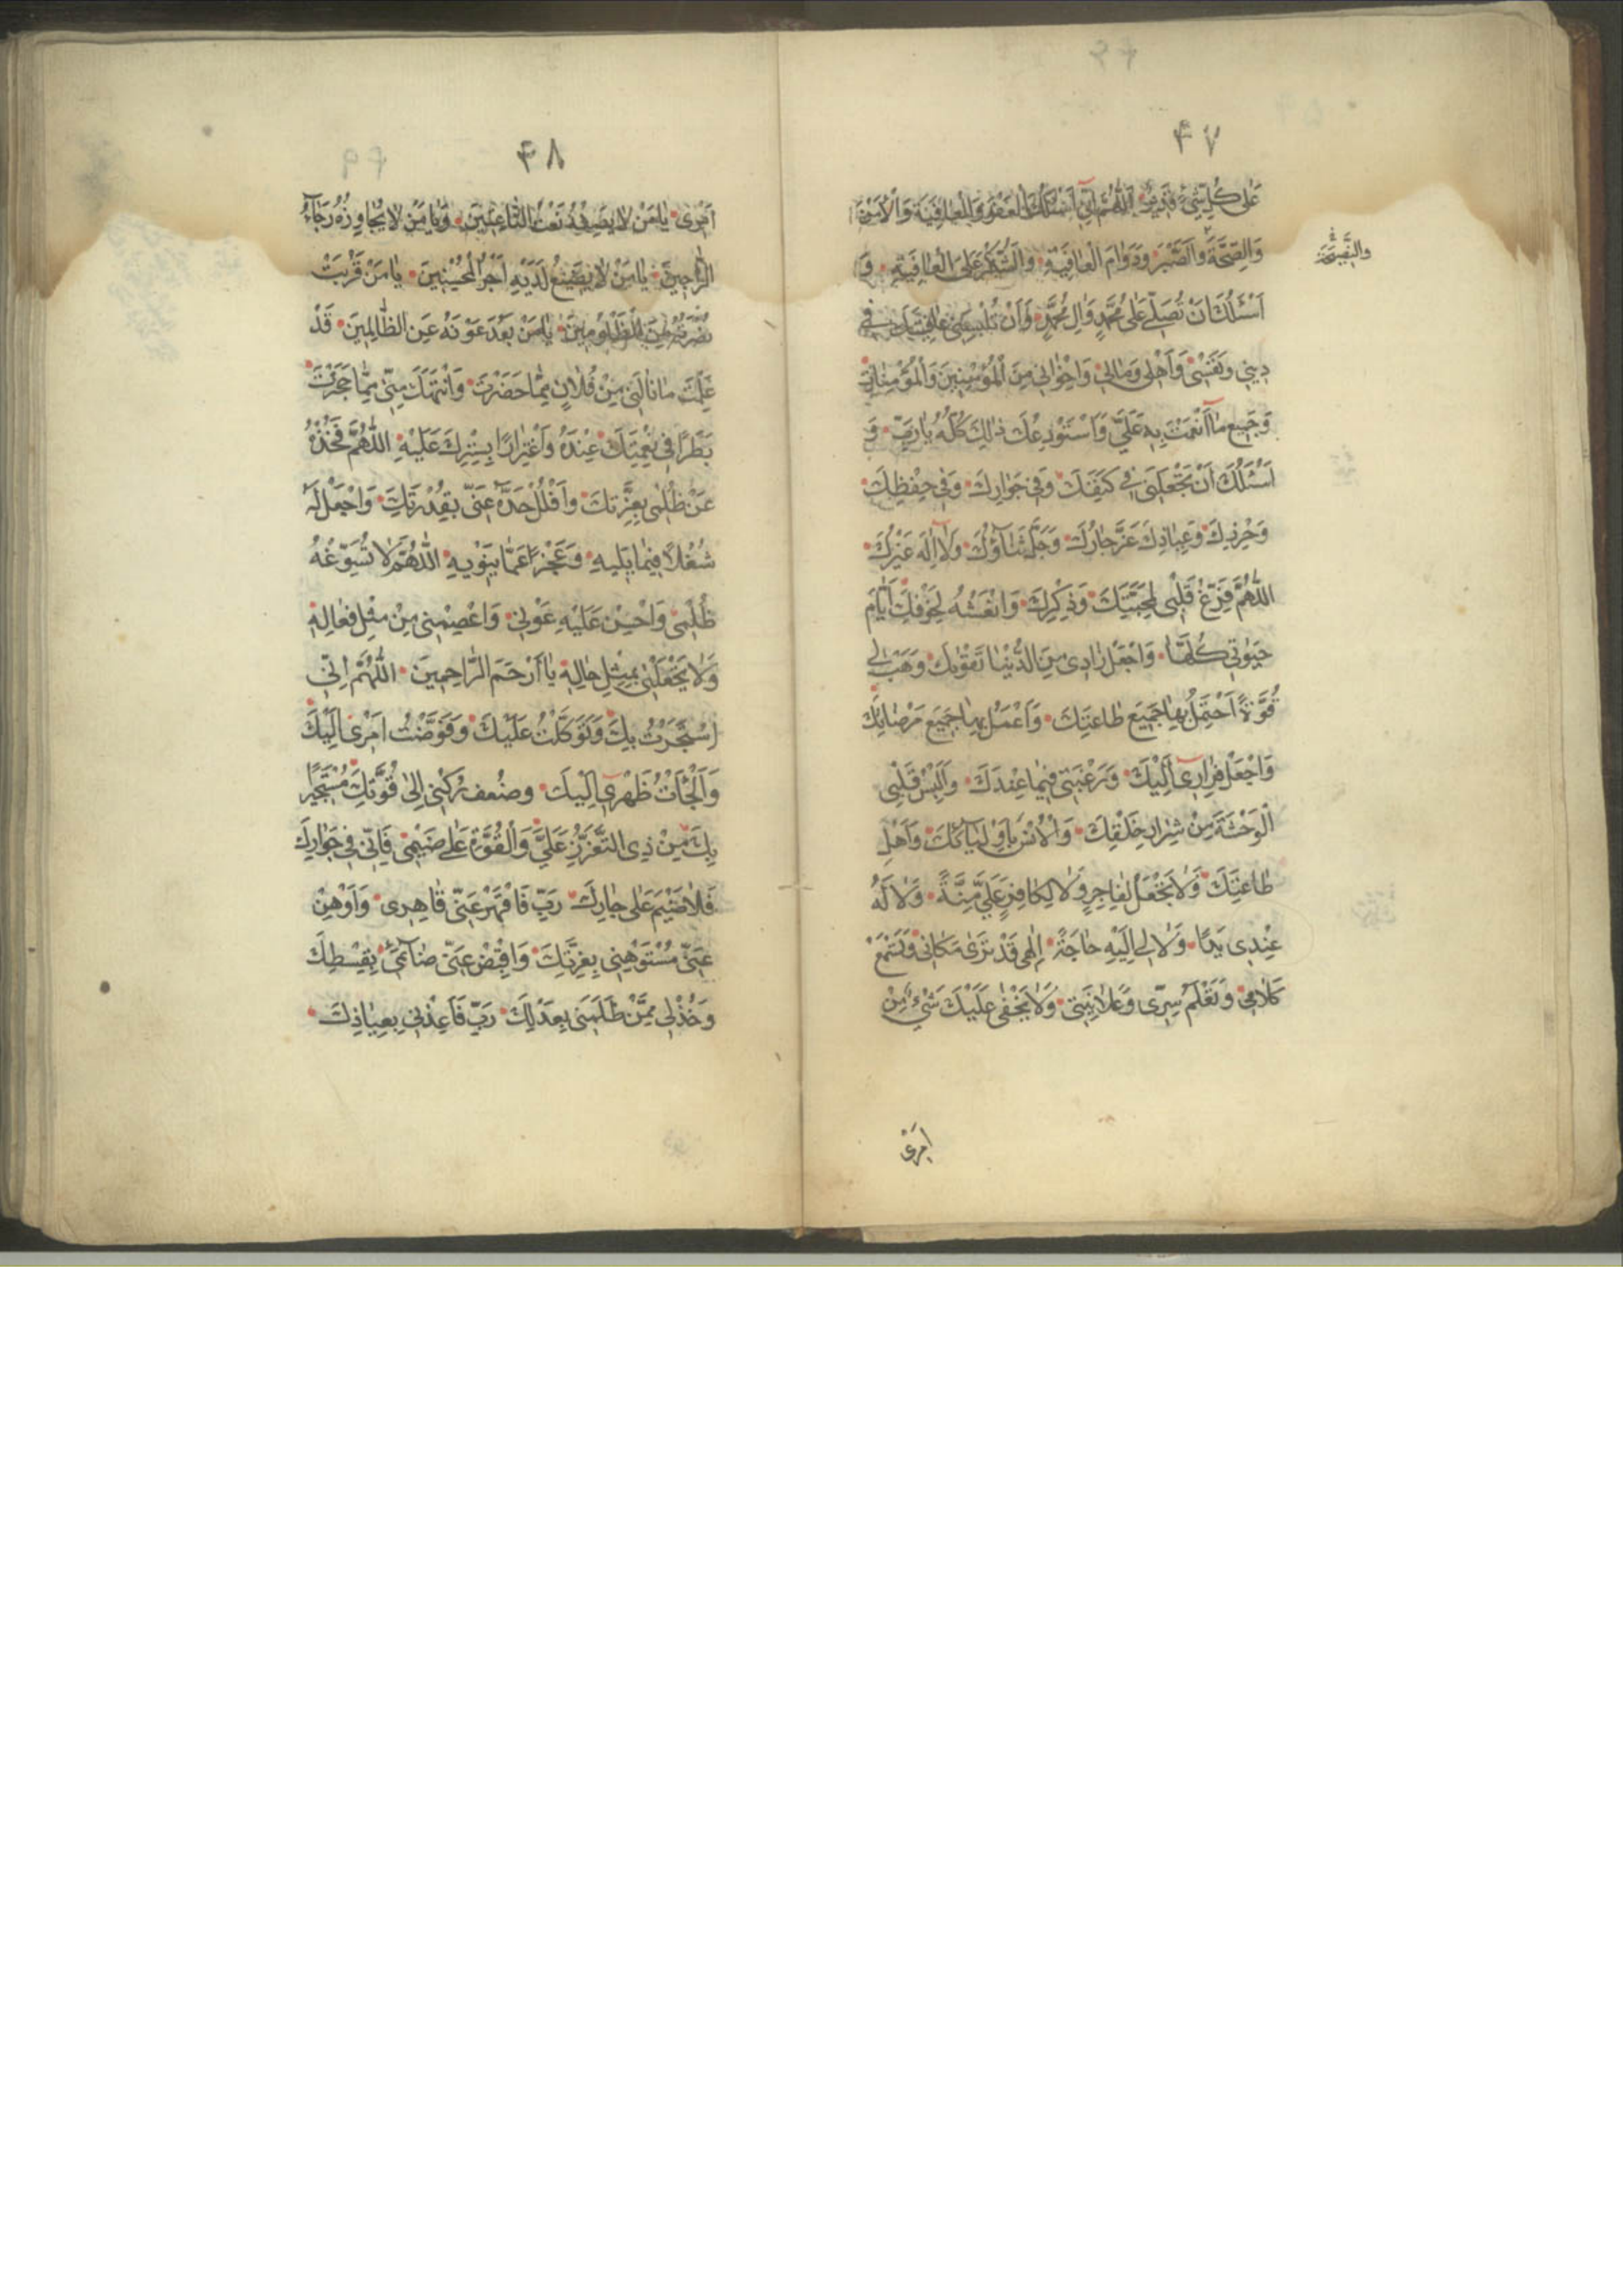 ۴۷
عَلىٰ كُلِّ شَيْءٍ قَدِيرٌ اَللّٰهُمَّ اِنّى اَسْئَلُكَ الْعَفْوَ وَالْعٰافِيَةَ وَالْاَمْنَ
وَالصِّحَّةَ وَالصَّبْرَ وَدَوٰامَ الْعٰافِيَةِ وَالشُّكْرَ عَلَى الْعٰافِيَةِ وَ
وَالنَّصِيحَةَ
اَسْئَلُكَ اَنْ تُصَلِّىَ عَلىٰ مُحَمَّدٍ وَاٰلِ مُحَمَّدٍ وَاَنْ تُلْبِسَنى عٰافِيَتَكَ فى
دينى وَنَفْسْى وَاَهْلى وَمٰالى وَاِخْوٰانى مِنَ الْمُؤْمِنينَ وَالْمُؤْمِنٰاتِ
وَجَميعِ مٰا اَنْعَمْتَ بِهِ عَلَىَّ وَاَسْتَوْدِعُكَ ذٰلِكَ كُلَّهُ يٰا رَبِّ وَ
اَسْئَلُكَ اَنْ تَجْعَلَنى فى كَنَفِكَ وَفى جَوٰارِكَ وَفى حِفْظِكَ
وَحِرْزِكَ وَعِيٰاذِكَ عَزَّ جٰارُكَ وَجَلَّ ثَنٰاؤُكَ وَلٰا اِلٰهَ غَيْرُكَ
اللّٰهُمَّ فَرِّغْ قَلْبى لِمَحَبَّتِكَ وَذِكْرِكَ وَانْعَشْهُ لِخَوْفِكَ اَيّٰامَ
حَيٰوتى كُلَّهٰا وَاجْعَلْ زٰادى مِنَ الدُّنْيٰا تَقْوٰيكَ وَهَبْ لى
قُوَّةً اَحْتَمِلُ بِهٰا جَميعَ طٰاعَتِكَ وَاَعْمَلُ بِهٰا جَميعَ مَرْضٰاتِكَ
وَاجْعَلْ فِرٰارى اِلَيْكَ وَرَغْبَتى فيمٰا عِنْدَكَ وَاَلْبِسْ قَلْبى
الْوَحْشَةَ مِنْ شِرٰارِ خَلْقِكَ وَالْاُنْسَ بِاَوْلِيٰآئِكَ وَاَهْلِ
طٰاعَتِكَ وَلٰا تَجْعَلْ لِفٰاجِرٍ وَلٰا لِكٰافِرٍ عَلَىَّ مِنَّةً وَلٰا لَهُ
عِنْدى يَدًا وَلٰا لى اِلَيْهِ حٰاجَةً اِلٰهى قَدْ تَرىٰ مَكٰانى وَتَسْمَعُ
كَلٰامى وَتَعْلَمُ سِرّى وَعَلٰانِيَتى وَلٰا يَخْفىٰ عَلَيْكَ شَىْءٌ مِنْ
اَمْرى
۴۸
اَمْرى يٰا مَنْ لٰا يَصِفُهُ نَعْتُ النّٰاعِتينَ وَيٰا مَنْ لٰا يُجٰاوِزُهُ رَجٰآءُ
الرّٰاجينَ يٰا مَنْ لٰا يَضيعُ لَدَيْهِ اَجْرُ الْمُحْسِنينَ يٰا مَنْ قَرُبَتْ
نُصْرَتُهُ مِنَ الْمَظْلُومينَ يٰا مَنْ بَعُدَ عَوْنُهُ عَنِ الظّٰالِمينَ قَدْ
عَلِمْتَ مٰا نٰالَنى مِنْ فُلٰانٍ مِمّٰا حَضَرْتَ وَانْتَهَكَ مِنّى مِمّٰا حَجَرْتَ
بَطَرًا فى نِعْمَتِكَ عِنْدَهُ وَاغْتِرٰارًا بِسِتْرِكَ عَلَيْهِ اللّٰهُمَّ فَخُذْهُ
عَنْ ظُلْمى بِعِزَّتِكَ وَافْلُلْ حَدَّهُ عَنّى بِقُدْرَتِكَ وَاجْعَلْ لَهُ
شُغْلًا فيمٰا يَليهِ وَعَجْزًا عَمّٰا يَنْويهِ اللّٰهُمَّ لٰا تُسَوِّغْهُ
ظُلْمى وَاَحْسِنْ عَلَيْهِ عَوْنى وَاعْصِمْنى مِنْ مِثْلِ فِعٰالِهِ
وَلٰا تَجْعَلْنى بِمِثْلِ حٰالِهِ يٰا اَرْحَمَ الرّٰاحِمينَ اللّٰهُمَّ اِنّى
اسْتَجَرْتُ بِكَ وَتَوَكَّلْتُ عَلَيْكَ وَفَوَّضْتُ اَمْرى اِلَيْكَ
وَاَلْجَأْتُ ظَهْرى اِلَيْكَ وضُعف رُكْنى اِلىٰ قُوَّتِكَ مُسْتَجيرًا
بِكَ مِنْ ذِى التَّعَزُّزِ عَلَىَّ وَالْقُوَّةِ عَلىٰ ضَيْمى فَاِنّى فى جَوٰارِكَ
فَلٰا ضَيْمَ عَلىٰ جٰارِكَ رَبِّ فَاقْهَرْ عَنّى قٰاهِرى وَاَوْهِنْ
عَنّى مُسْتَوْهِنى بِعِزَّتِكَ وَاقْبِضْ عَنّى ضٰآئِمى بِقِسْطِكَ
وَخُذْ لى مِمَّنْ ظَلَمَنى بِعَدْلِكَ رَبِّ فَاَعِذْنى بِعِيٰاذِكَ